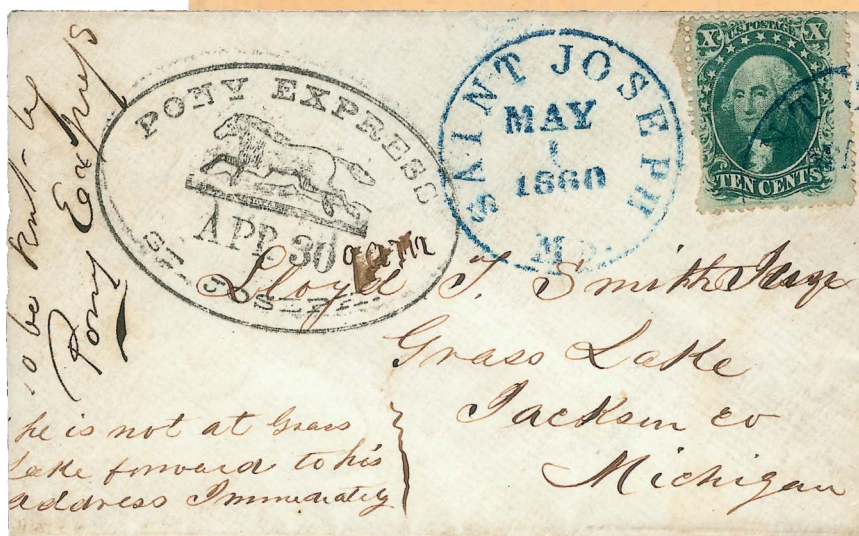 to be sent by
Pony Express
PONY EXPRESS
APR 30
ST. JOSEPH
SAINT JOSEPH
MAY
1
1860
Mo.
X U.S. POSTAGE X
TEN CENTS
Lloyd T. Smith
Grass Lake
Jackson co
Michigan
he is not at Grass
Lake forward to his
address Immediately